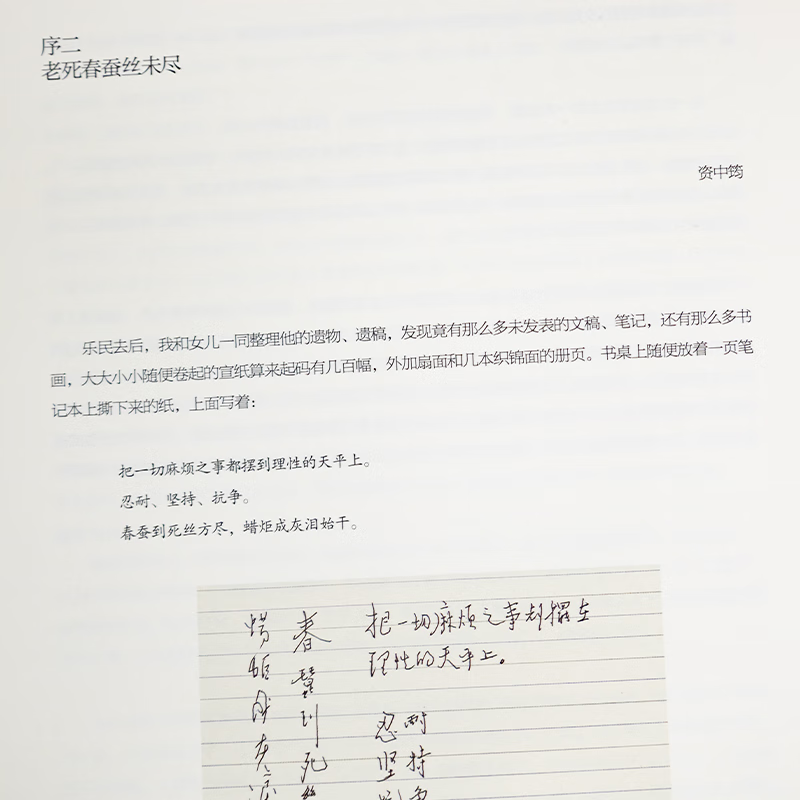 序二
老死春蚕丝未尽
资中筠
乐民去后，我和女儿一同整理他的遗物、遗稿，发现竟有那么多未发表的文稿、笔记，还有那么多书
画，大大小小随便卷起的宣纸算来起码有几百幅，外加扇面和几本织锦面的册页。书桌上随便放着一页笔
记本上撕下来的纸，上面写着：
把一切麻烦之事都摆到理性的天平上。
忍耐、坚持、抗争。
春蚕到死丝方尽，蜡炬成灰泪始干。
把一切麻烦之事都摆在
理性的天平上。
忍耐
坚持
春蚕到死丝
蜡炬成灰泪